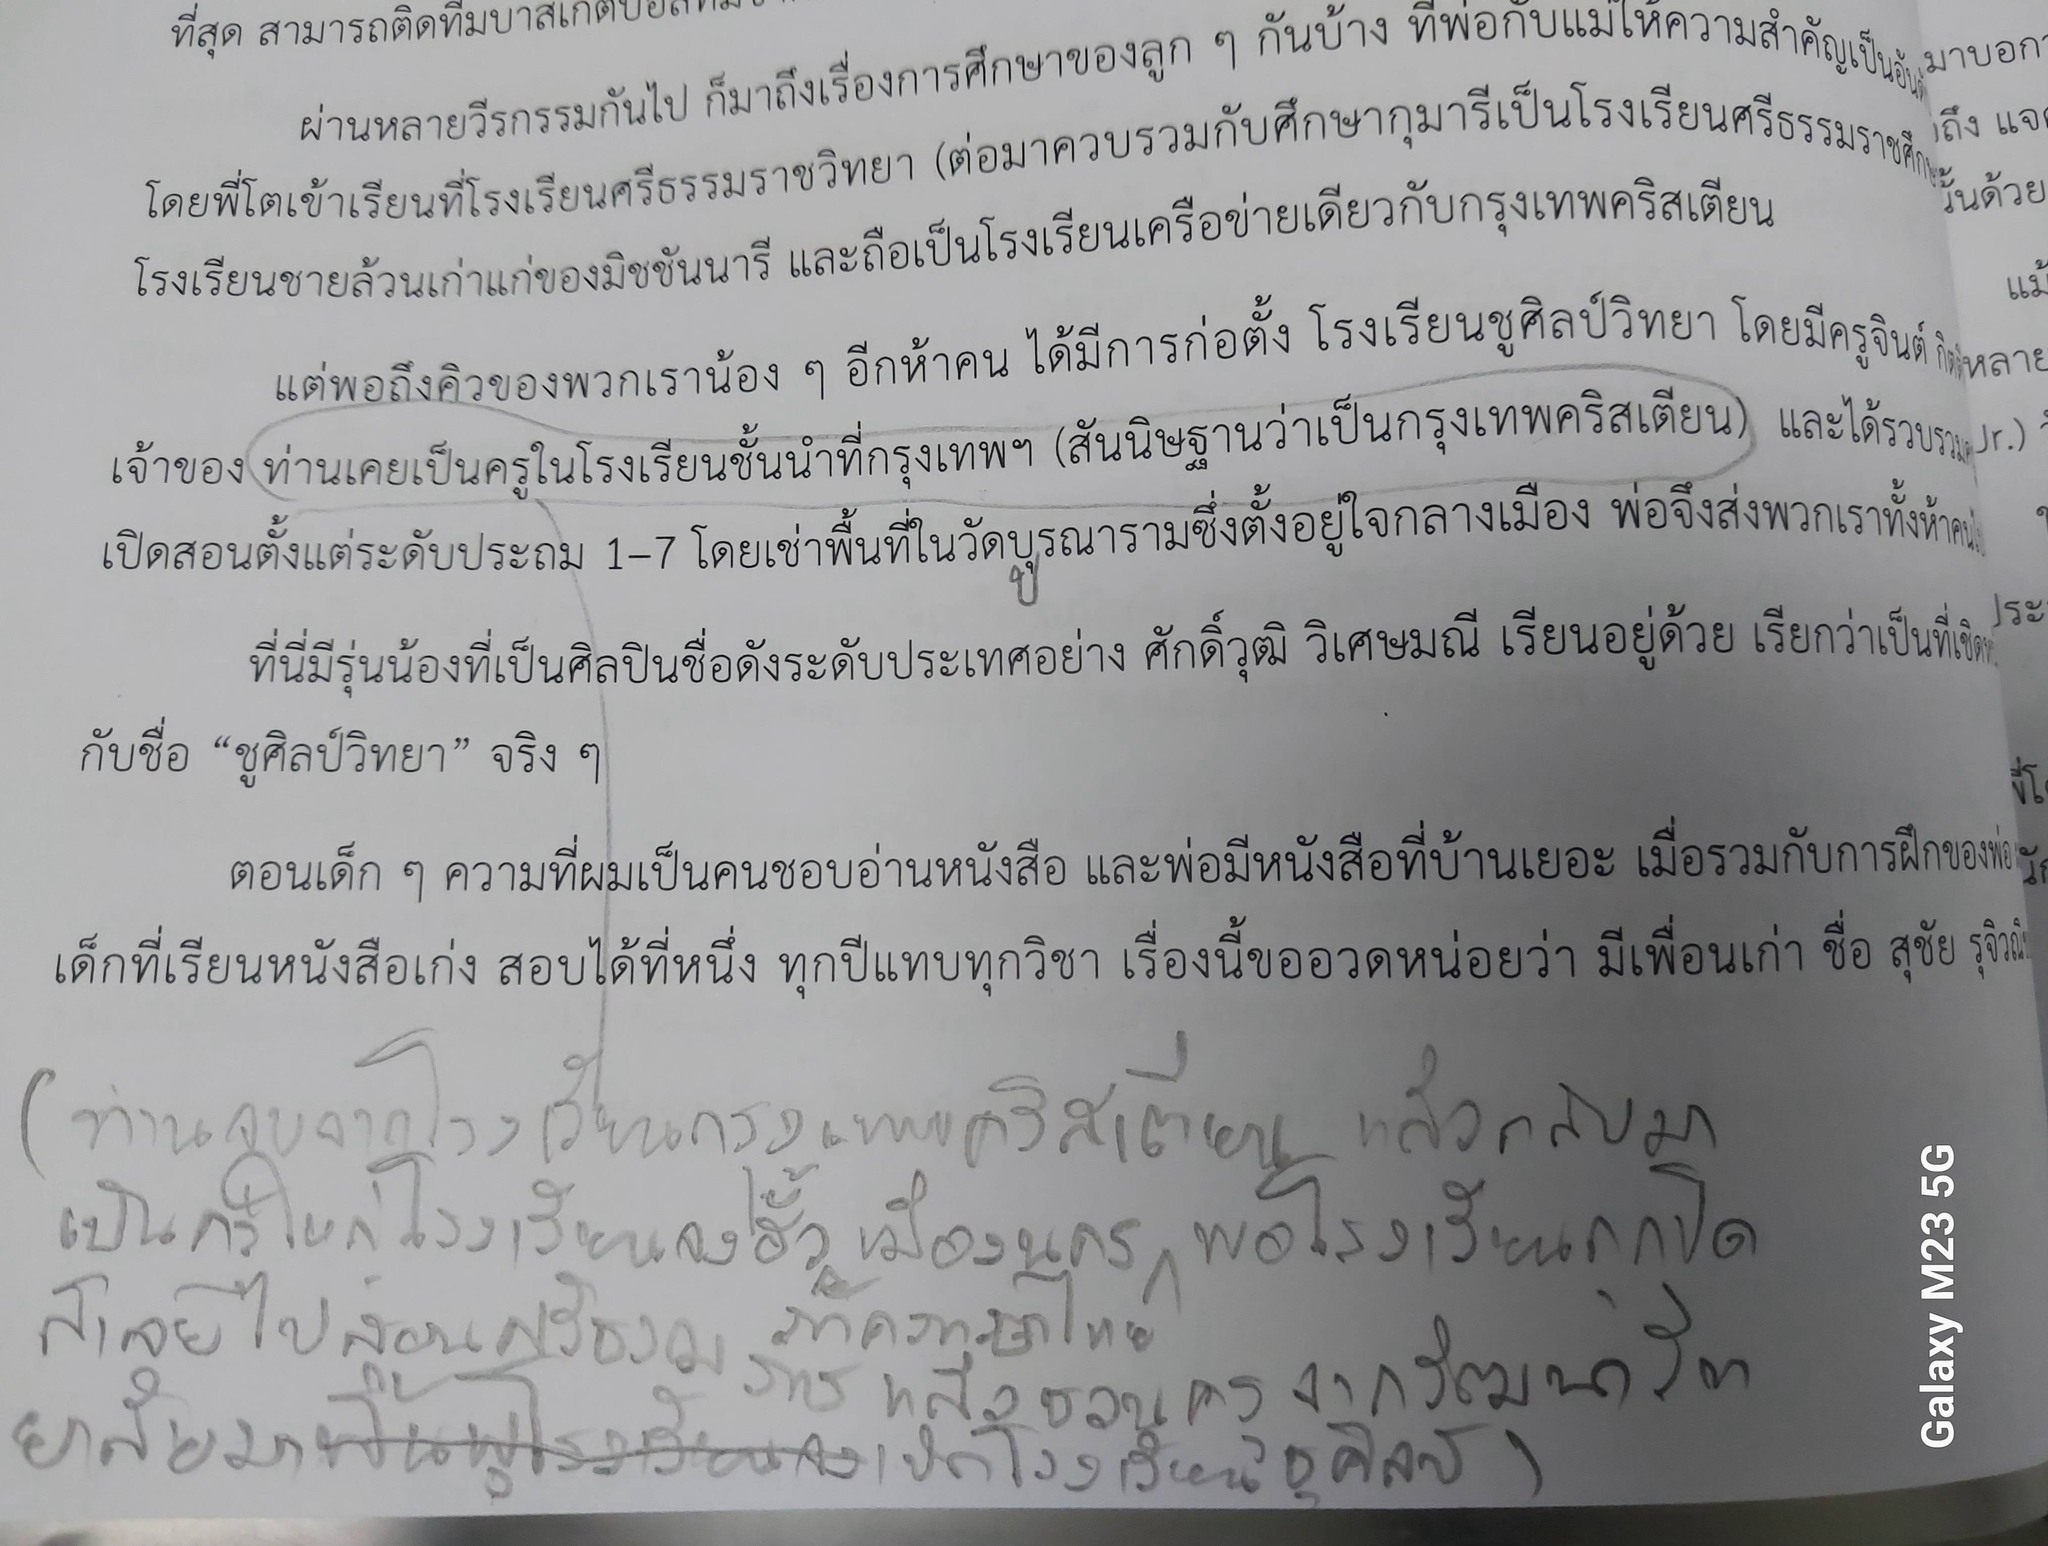 ที่สุด สามารถติดทีมบาสเกตบอล
ผ่านหลายวีรกรรมกันไป ก็มาถึงเรื่องการศึกษาของลูก ๆ กันบ้าง ที่พ่อกับแม่ให้ความสำคัญเป็น
โดยพี่โตเข้าเรียนที่โรงเรียนศรีธรรมราชวิทยา (ต่อมาควบรวมกับศึกษากุมารีเป็นโรงเรียนศรีธรรมราชศึก
โรงเรียนชายล้วนเก่าแก่ของมิชชันนารี และถือเป็นโรงเรียนเครือข่ายเดียวกับกรุงเทพคริสเตียน
แต่พอถึงคิวของพวกเราน้อง ๆ อีกห้าคน ได้มีการก่อตั้ง โรงเรียนชูศิลป์วิทยา โดยมีครูจินต์
เจ้าของ ท่านเคยเป็นครูในโรงเรียนชั้นนำที่กรุงเทพฯ (สันนิษฐานว่าเป็นกรุงเทพคริสเตียน) และได้รวบรวม
เปิดสอนตั้งแต่ระดับประถม 1-7 โดยเช่าพื้นที่ในวัดบูรณารามซึ่งตั้งอยู่ใจกลางเมือง พ่อจึงส่งพวกเราทั้งห้าคน
บู
ที่นี่มีรุ่นน้องที่เป็นศิลปินชื่อดังระดับประเทศอย่าง ศักดิ์วุฒิ วิเศษมณี เรียนอยู่ด้วย เรียกว่าเป็นที่เชิด
กับชื่อ “ชูศิลป์วิทยา” จริง ๆ
ตอนเด็ก ๆ ความที่ผมเป็นคนชอบอ่านหนังสือ และพ่อมีหนังสือที่บ้านเยอะ เมื่อรวมกับการฝึกของพ่อ
เด็กที่เรียนหนังสือเก่ง สอบได้ที่หนึ่ง ทุกปีแทบทุกวิชา เรื่องนี้ขออวดหน่อยว่า มีเพื่อนเก่า ชื่อ สุชัย
(ท่านจบจากโรงเรียนกรุงเทพคริสเตียน แล้วกลับมา
เป็นครูใหญ่โรงเรียนจงฮั้ว เมืองนคร พอโรงเรียนถูกปิด
ก็เลยไปสอนศรีธรรมราช ภาษาไทย
แล้วชวนครูจากวัฒนาวิท
ยาลัยมา เปิดโรงเรียนชูศิลป์)
Galaxy M23 5G